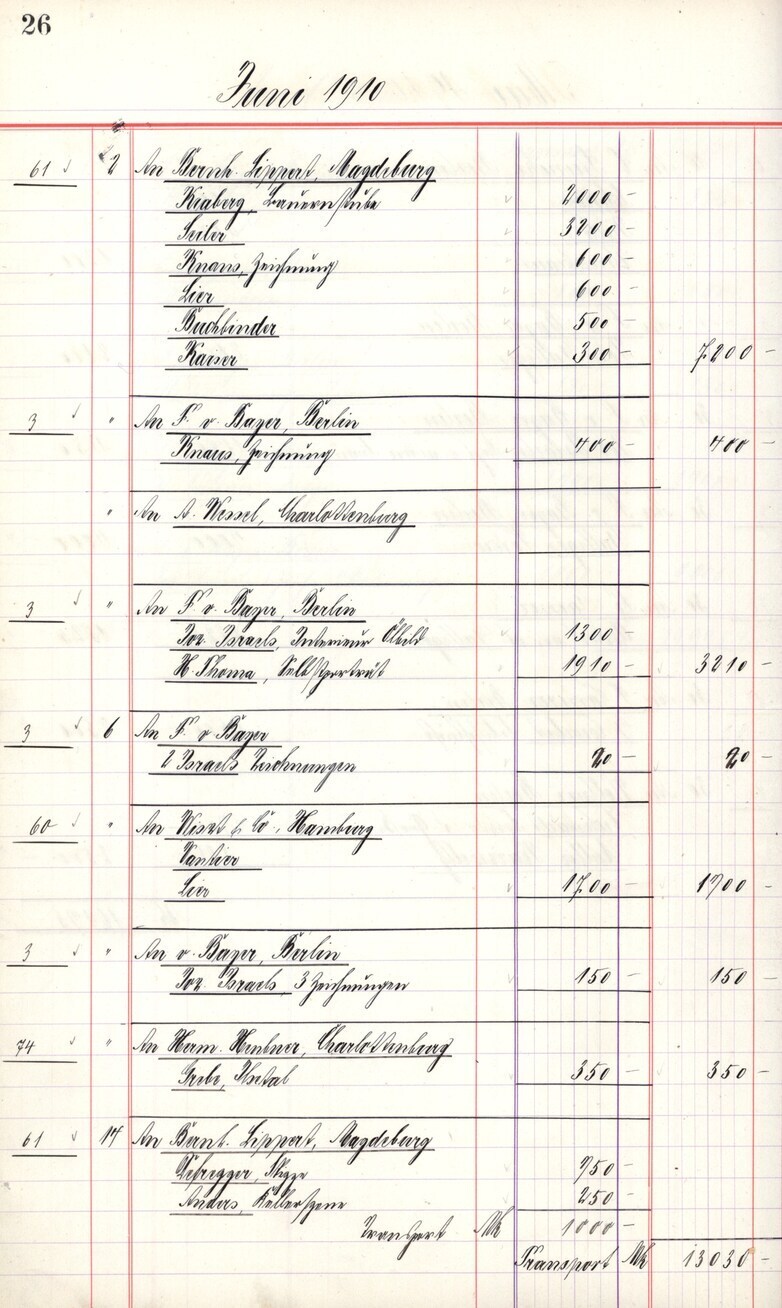 26
Juni 1910
61 2 An Bernh. Lippert, Magdeburg
Kiaberg, Bauernstube 2000 –
Seiler 3200 –
Knaus, Zeichnung 600 –
Lier 600 –
Buchbinder 500 –
Kaiser 300 – 7200 –
3 " An F. v. Bayer, Berlin
Knaus, Zeichnung 400 – 400 –
" An A. Wessel, Charlottenburg
3 " An F v. Bayer, Berlin
Joz. Israels, Interieur Ölbild 1300 –
H. Thoma, Selbstporträt 1910 – 3210 –
3 6 An F. v Bayer
2 Israels Zeichnungen 20 – 20 –
60 " An & Co., Hamburg
Vautier
Lier 1700 – 1700 –
3 " An v. Bayer, Berlin
Joz. Israels, 3 Zeichnungen 150 – 150 –
74 " An Herm. Heubner, Charlottenburg
Grebe, 350 – 350 –
61 14 An Bernh. Lippert, Magdeburg
Defregger, Skizze 750 –
Anders, Kellerszene 250 –
Transport Mk 1000 –
Transport Mk 13030 –